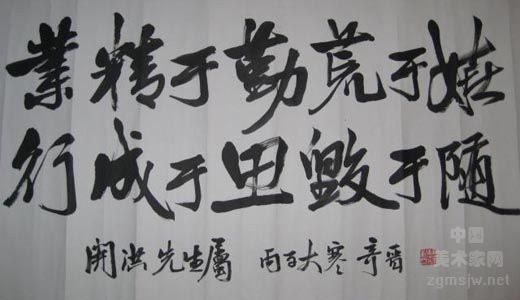 業精于勤荒于嬉
行成于思毁于随
開洪先生屬 大寒
中国
美术家网
zgmsjw.net